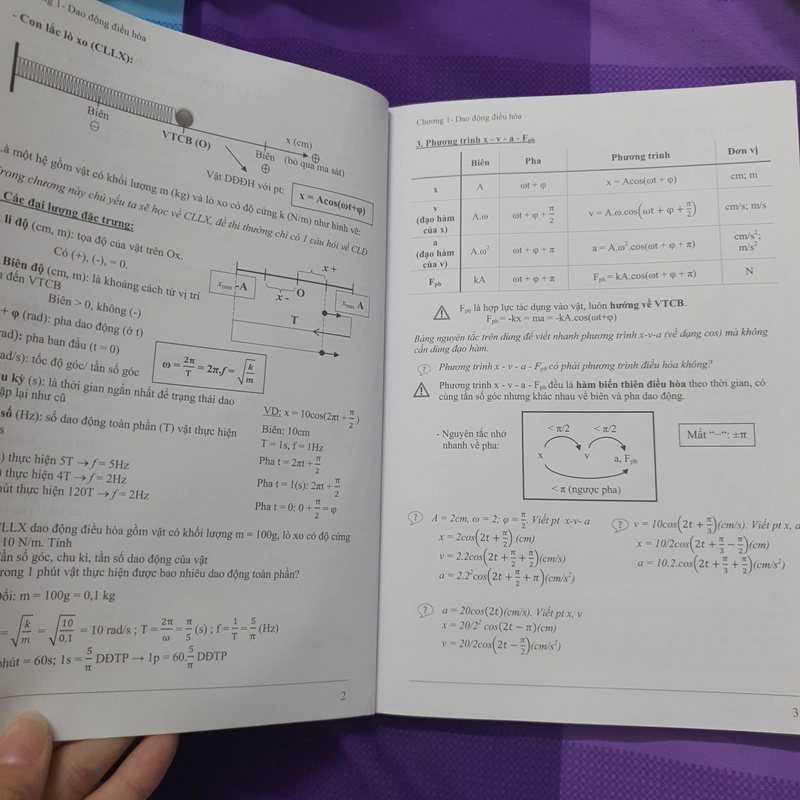 1- Dao động điều hòa
- Con lắc lò xo (CLLX):
Biên
⊖
VTCB (O)
Biên
⊕
x (cm)
(bỏ qua ma sát)
⊕
Vật DĐĐH với pt:
x = Acos(ωt+φ)
Là một hệ gồm vật có khối lượng m (kg) và lò xo có độ cứng k (N/m) như hình vẽ:
Trong chương này chủ yếu ta sẽ học về CLLX, đề thi thường chỉ có 1 câu hỏi về CLĐ
Các đại lượng đặc trưng:
li độ (cm, m): tọa độ của vật trên Ox.
Có (+), (-), = 0.
Biên độ (cm, m): là khoảng cách từ vị trí
đến VTCB
Biên > 0, không (-)
+ φ (rad): pha dao động (ở t)
rad): pha ban đầu (t = 0)
rad/s): tốc độ góc/ tần số góc
ω = 2π/T = 2π.f = √(k/m)
x+
xmin -A
x -
O
xmax A
T
kỳ (s): là thời gian ngắn nhất để trạng thái dao
lặp lại như cũ
số (Hz): số dao động toàn phần (T) vật thực hiện
s
) thực hiện 5T → f = 5Hz
) thực hiện 4T → f = 2Hz
phút thực hiện 120T → f = 2Hz
VD: x = 10cos(2πt + π/2)
Biên: 10cm
T = 1s, f = 1Hz
Pha t = 2πt + π/2
Pha t = 1(s): 2πt + π/2
Pha t = 0: 0 + π/2 = φ
CLLX dao động điều hòa gồm vật có khối lượng m = 100g, lò xo có độ cứng
10 N/m. Tính
Tần số góc, chu kì, tần số dao động của vật
Trong 1 phút vật thực hiện được bao nhiêu dao động toàn phần?
Đổi: m = 100g = 0,1 kg
= √(k/m) = √(10/0,1) = 10 rad/s ; T = 2π/ω = π/5 (s) ; f = 1/T = 5/π (Hz)
phút = 60s; 1s = 5/π DĐTP → 1p = 60.5/π DĐTP
2
Chương 1- Dao động điều hòa
3. Phương trình x - v - a - Fph
Biên Pha Phương trình Đơn vị
x A ωt + φ x = Acos(ωt + φ) cm; m
v (đạo hàm của x) A.ω ωt + φ + π/2 v = A.ω.cos(ωt + φ + π/2) cm/s; m/s
a (đạo hàm của v) A.ω² ωt + φ + π a = A.ω².cos(ωt + φ + π) cm/s²; m/s²
Fph kA ωt + φ + π Fph = kA.cos(ωt + φ + π) N
Fph là hợp lực tác dụng vào vật, luôn hướng về VTCB.
Fph = -kx = ma = -kA.cos(ωt+φ)
Bảng nguyên tắc trên dùng để viết nhanh phương trình x-v-a (về dạng cos) mà không
cần dùng đạo hàm.
? Phương trình x - v - a - Fph có phải phương trình điều hòa không?
Phương trình x - v - a - Fph đều là hàm biến thiên điều hòa theo thời gian, có
cùng tần số góc nhưng khác nhau về biên và pha dao động.
- Nguyên tắc nhớ
nhanh về pha:
< π/2 < π/2
x v a, Fph
< π (ngược pha)
Mất “–“: ±π
? A = 2cm, ω = 2; φ = π/2. Viết pt x-v- a
x = 2cos(2t + π/2) (cm)
v = 2.2cos(2t + π/2 + π/2)(cm/s)
a = 2.2²cos(2t + π/2 + π)(cm/s²)
? v = 10cos(2t + π/3)(cm/s). Viết pt x, a
x = 10/2cos(2t + π/3 − π/2)(cm)
a = 10.2.cos(2t + π/3 + π/2)(cm/s²)
? a = 20cos(2t)(cm/s). Viết pt x, v
x = 20/2² cos(2t − π)(cm)
v = 20/2cos(2t − π/2)(cm/s²)
3